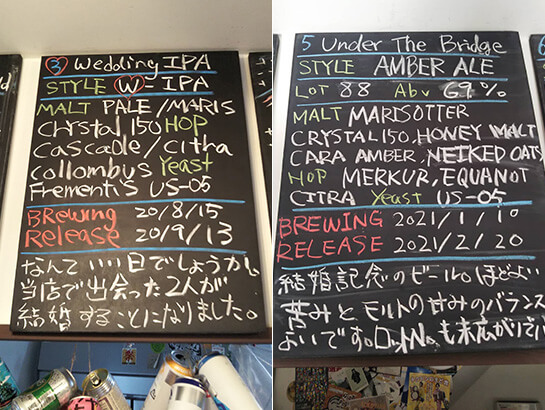 3 Wedding IPA
STYLE W-IPA
MALT PALE/MARIS
Chrystal,150 HOP
Cascade/Citra
Collombus Yeast
Frementis US-05
BRewing 20/8/15
Release 20/9/13
なんていい日でしょうか。
当店で出会った2人が
結婚することになりました。
5 Under The Bridge
STYLE AMBER ALE
LOT 88 Abv 6.9%
MALT MARISOTTER
CRYSTAL150, HONEY MALT
CARA AMBER, NEIKED OATS
HOP MERKUR, EQUANOT
CITRA Yeast US-05
BREWING 2021/1/10
RELEASE 2021/2/20
結婚記念のビール。ほどよい
苦みとモルトの甘みのバランス
よいです。ロットNo.も末広がりで